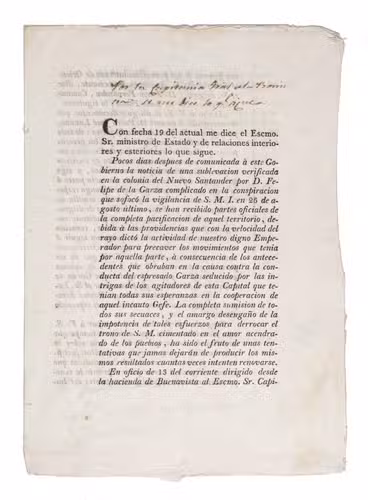 Por la Capitanía Gral
se me dice lo q.e sigue
Con fecha 19 del actual me dice el Escmo.
Sr. ministro de Estado y de relaciones interio-
res y esteriores lo que sigue.
Pocos dias despues de comunicada à este Go-
bierno la noticia de una sublevacion verificada
en la colonia del Nuevo Santander por D. Fe-
lipe de la Garza complicado en la conspiracion
que sofocó la vigilancia de S. M. I. en 26 de
agosto último, se han recibido partes oficiales de
la completa pacificacion de aquel territorio, de-
bida à las providencias que con la velocidad del
rayo dictó la actividad de nuestro digno Empe-
rador para precaver los movimientos que tenia
por aquella parte, à consecuencia de los antece-
dentes que obraban en la causa contra la con-
ducta del espresado Garza seducido por las in-
trigas de los agitadores de esta Capital que te-
nian todas sus esperanzas en la cooperacion de
aquel incauto Gefe. La completa sumision de to-
dos sus secuaces, y el amargo desengaño de la
impotencia de tales esfuerzos para derrocar el
trono de S. M. cimentado en el amor acendra-
do de los pueblos, ha sido el fruto de unas ten-
tativas que jamas dejarán de producir los mis-
mos resultados cuantas veces intenten renovarse.
En oficio de 13 del corriente dirigido desde
la hacienda de Buenavista al Escmo. Sr. Capi-